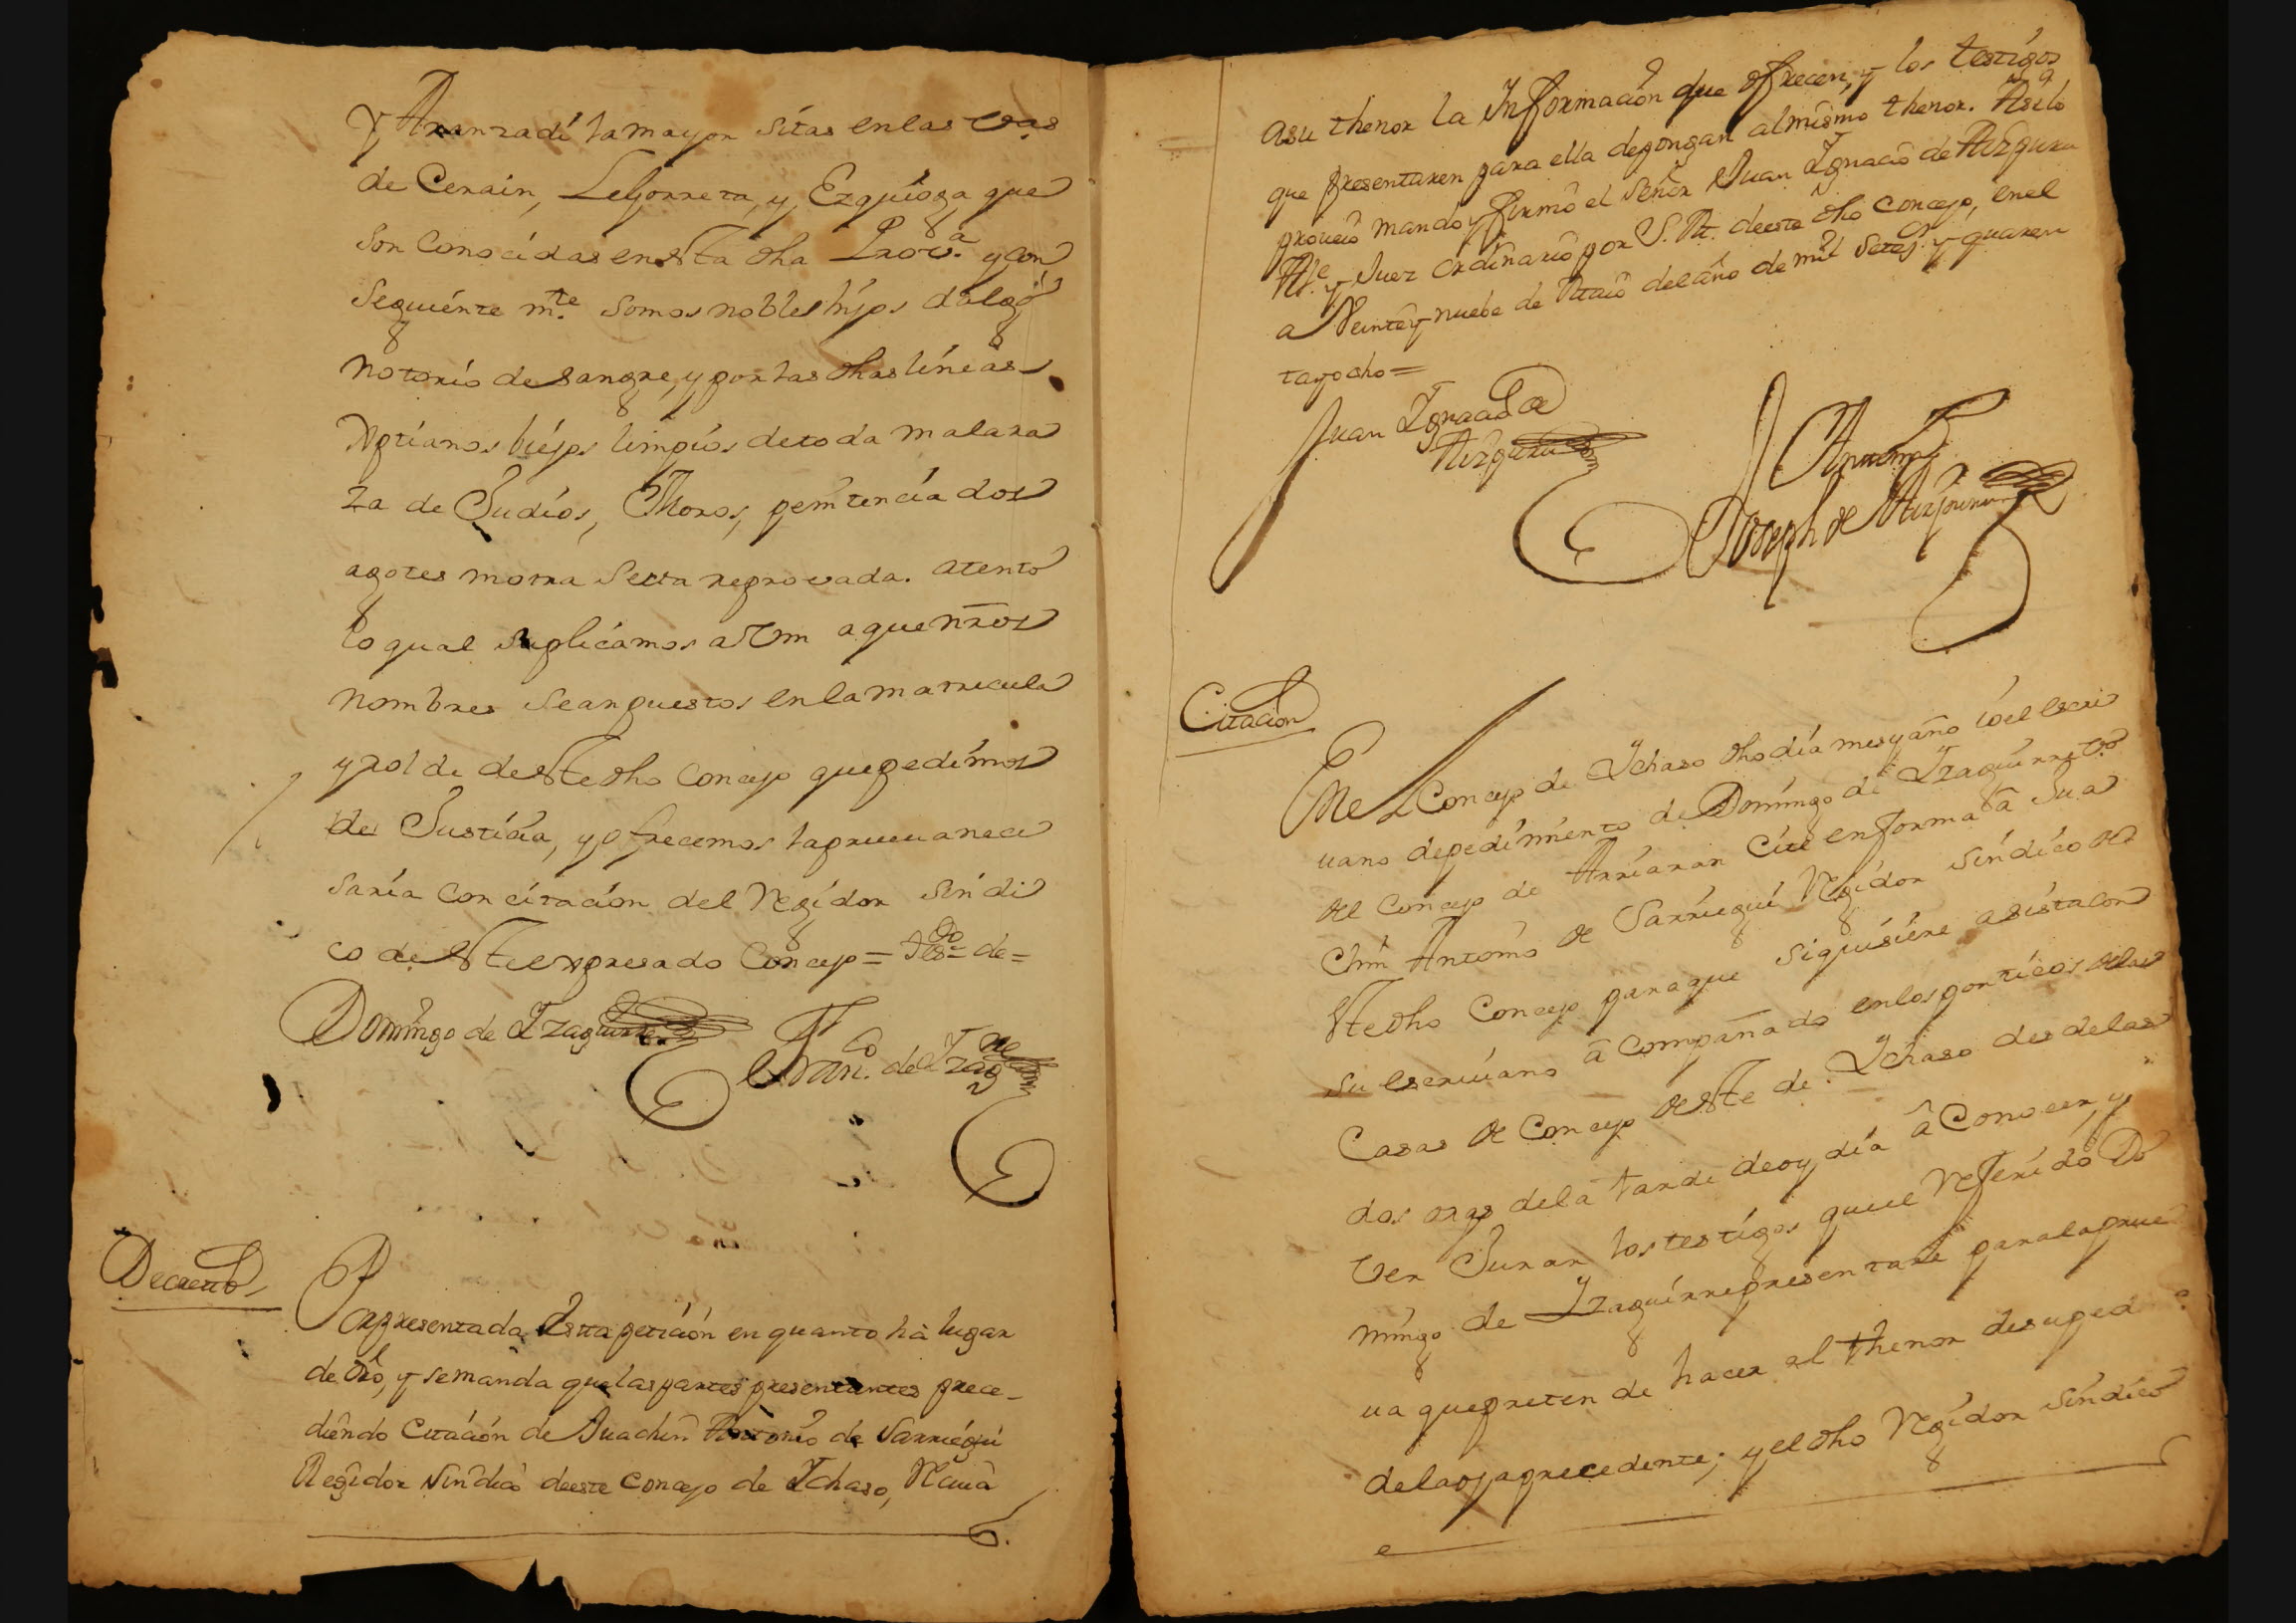 Y Aranzadi la mayor sitas en las v.as
de Cerain, Legorreta, y Ezquioga que
son conocidas en esta dha Prov.a y con
siguiente m.te somos nobles hijos dalgo
notorio de sangre, y por las dhas lineas
Xptianos biejos limpios de toda mala ra
za de Judios, Moros, penitenciados
agotes ni otra secta reprovada. atento
lo qual suplicamos a Vm a que nros
nombres sean puestos en la matricula
y rolde de este dho Concejo que pedimos
de Justicia, y ofrecemos la prueua nece
saria con citacion del Regidor sindi
co de este expresado Concejo = de =
Domingo de Yzaguirre
Fran.co de Yzag.rre
Decreto
Por presentada esta peticion en quanto hà lugar
de dro, y se manda que las partes presentantes prece-
diendo Citacion de Juachin Antonio de Sarriegui
Regidor Sindico de este concejo de Ychaso, Reciua
a su thenor la Informacion que ofrecen, y los testigos
que presentaren para ella depongan al mismo thenor. Asi lo
proueio mando y firmo el Señor Juan Ygnacio de Aizpuru
Al.e y Juez ordinario por S. M. de este dho concejo, en el
a Veinte y nuebe de Maio del año de mil setez.s y quaren
ta y ocho =
Juan Ygnacio de
Aizpuru
Antemi
Joseph de Aizpuru
Citacion
En el Concejo de Ychaso dho dia mes y año io el escri
uano de pedimiento de Domingo de Yzaguirre v.o
del Concejo de Arriaran Cite en forma â Jua
chin Antonio de Sarriegui Regidor sindico de
este dho Concejo para que si quisiere asista con
su escriuano âcompañado en los porticos de las
Casas de Concejo de este de Ychaso desde las
dos oras de la tarde de oy dia â Conocer, y
ver Jurar los testigos que el Referido Do
mingo de Yzaguirre presentare para la prue
ua que pretende hacer al thenor de su ped
de la oja precedente; y el dho Regidor sindico